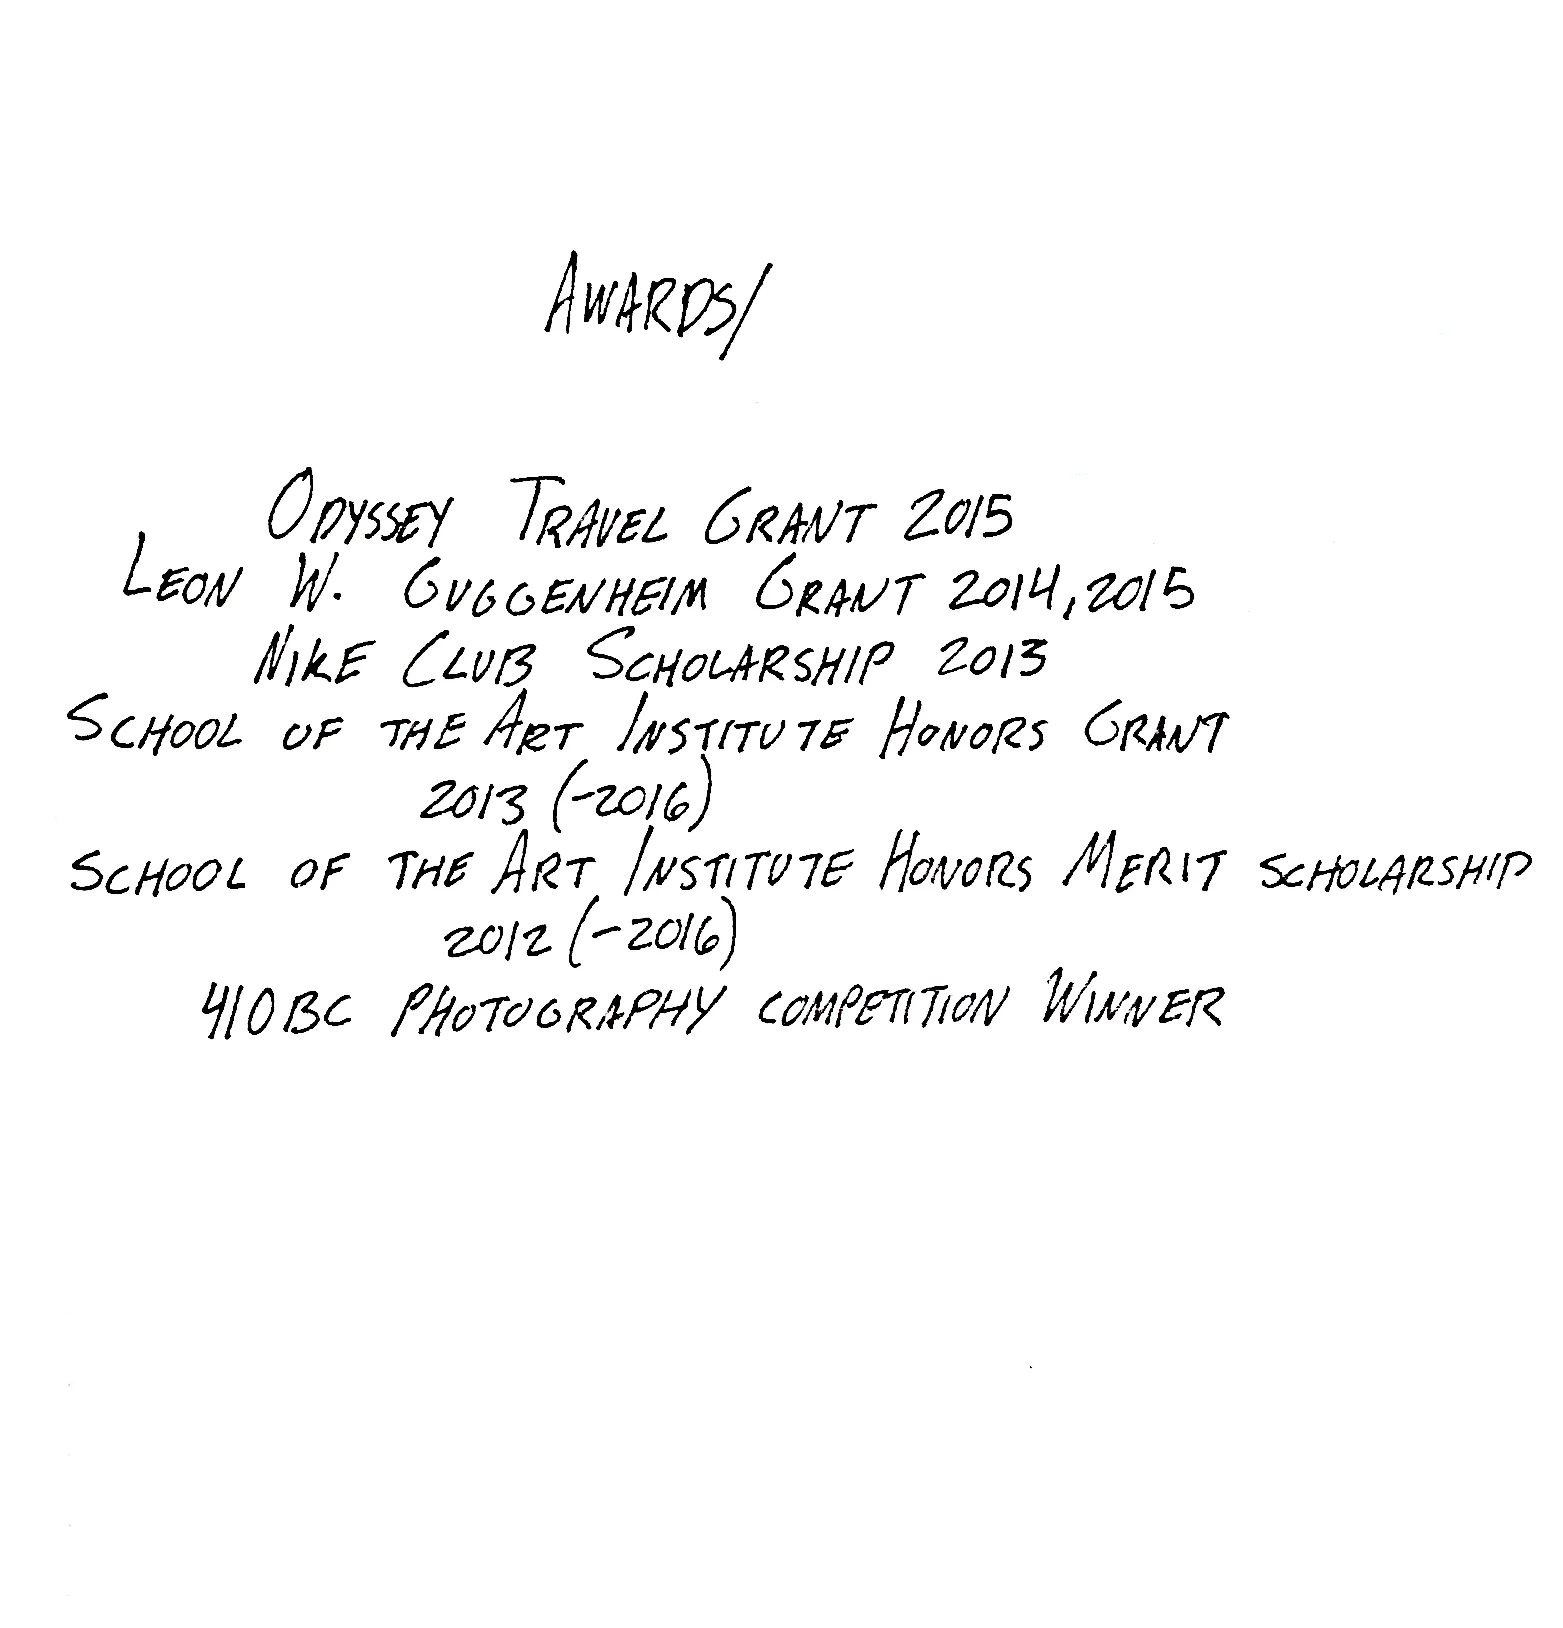 AWARDS/
ODYSSEY TRAVEL GRANT 2015
LEON W. GUGGENHEIM GRANT 2014, 2015
NIKE CLUB SCHOLARSHIP 2013
SCHOOL OF THE ART INSTITUTE HONORS GRANT
2013 (-2016)
SCHOOL OF THE ART INSTITUTE HONORS MERIT SCHOLARSHIP
2012 (-2016)
410BC PHOTOGRAPHY COMPETITION WINNER